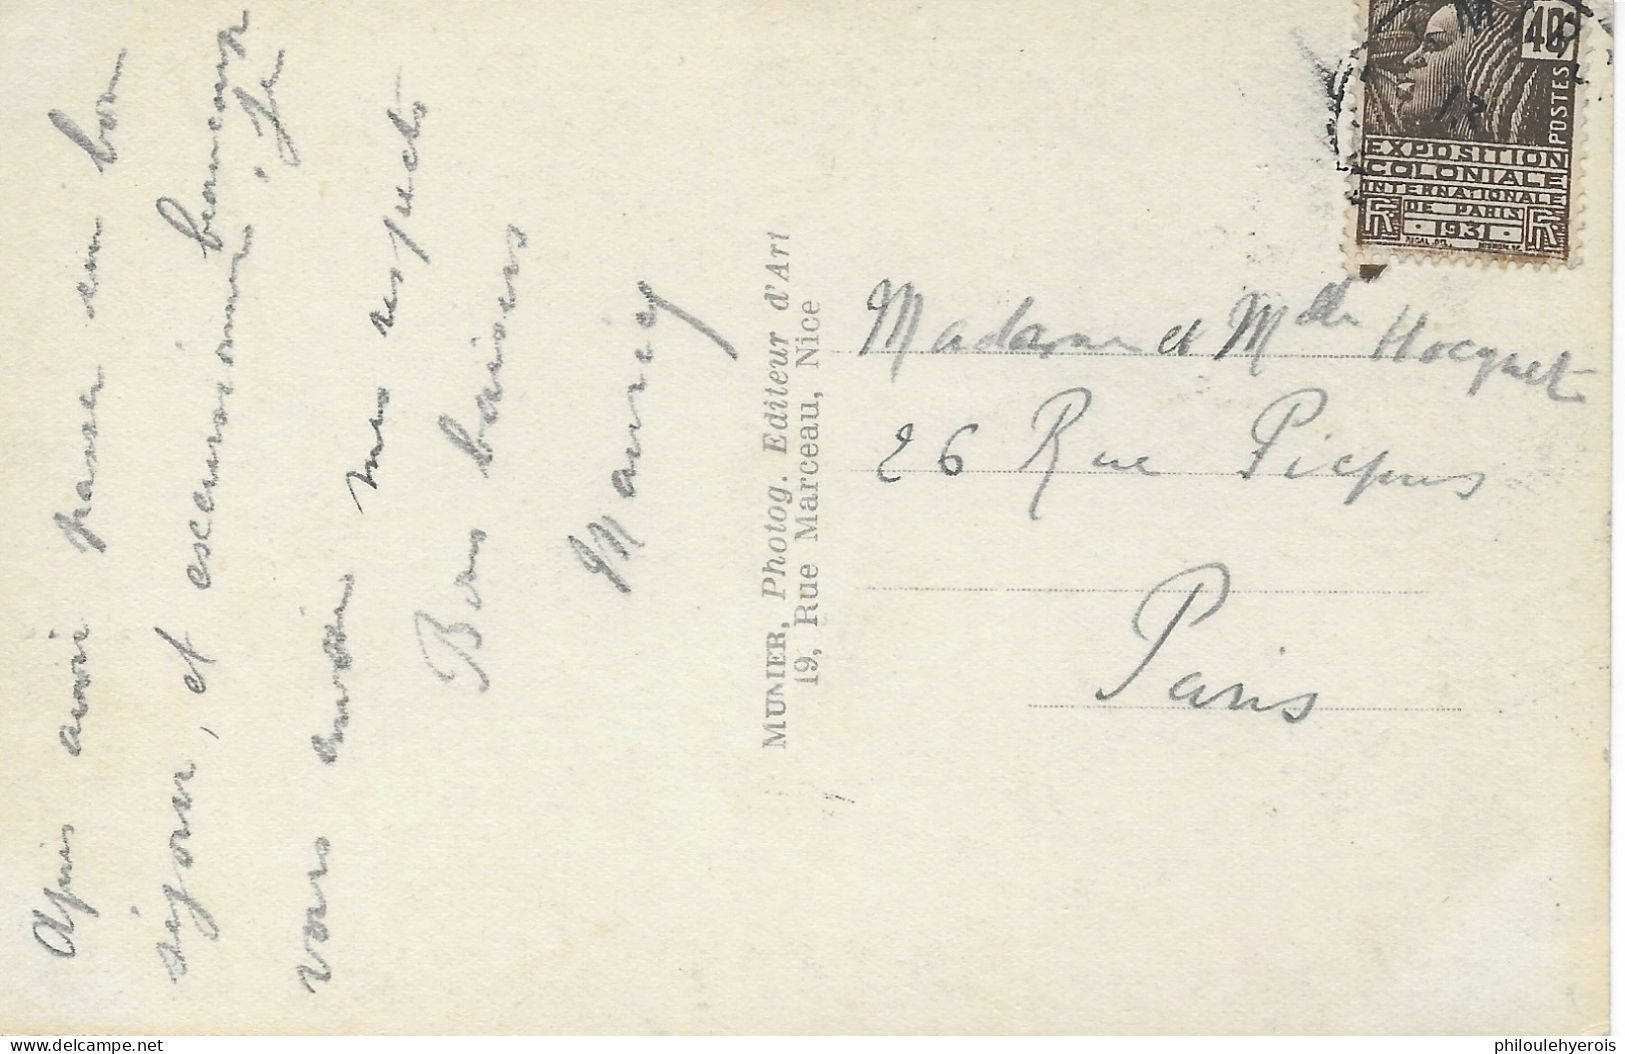 Après avoir passer un bon
séjour, et excursionner beaucoup, Je
vous envoie mes respects
Bons baisers
Maurice
MUNIER, Photog. Editeur d'Art
19, Rue Marceau, Nice
40
POSTES
EXPOSITION
COLONIALE
INTERNATIONALE
DE PARIS
RF 1931 RF
Madame et Mlle Hocquet
26 Rue Picpus
Paris
www.delcampe.net
philoulehyerois